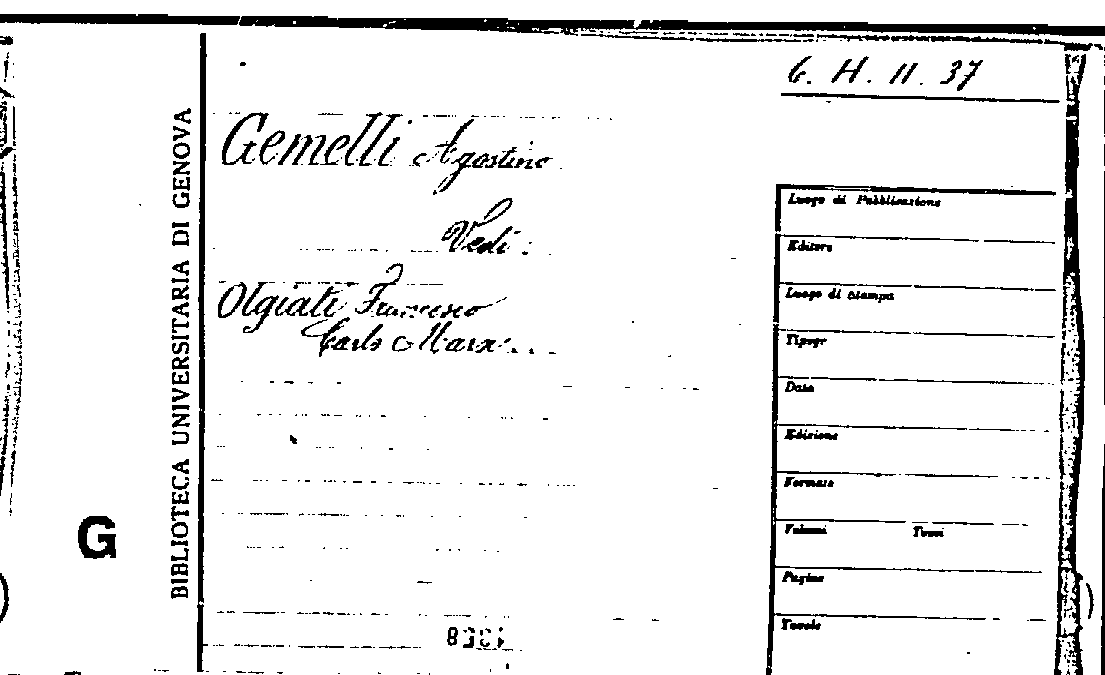 6. H. 11. 37
BIBLIOTECA UNIVERSITARIA DI GENOVA
G
Gemelli Agostino
Vedi:
Olgiati Francesco
Carlo Marx...
Luogo di Pubblicazione
Editore
Luogo di stampa
Tipogr
Data
Edizione
Formato
Volumi Tomi
Pagine
Tavole